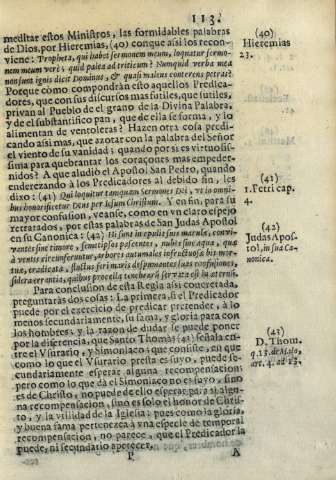 113.
meditar estos Ministros, las formidables palabras
de Dios, por Hieremias, (40) conque assi los recon-
viene: Propheta, qui habet sermonem meum, loquatur sermo-
nem meum verè; quid paleæ ad triticum? Numquid verba mea
non sunt ignis dicit Dominus, & quasi malleus conterens petras?
Porque como compondràn esto aquellos Predica-
dores, que con sus discursos mas futiles, que utiles,
privan al Pueblo de el grano de la Divina Palabra,
y de el substantifico pan, que de ella se forma, y lo
alimentan de ventoleras? Hazen otra cosa predi-
cando assi mas, que azotar con la palabra del Señor
el viento de su vanidad; quando por si es virtuosis-
sima para quebrantar los coraçones mas empeder-
nidos? A que aludiò el Apostol San Pedro, quando
enderezando à los Predicadores al debido fin, les
dixo: (41) Qui loquitur tamquam Sermones Dei, ut in omni-
bus honorificetur Deus per Iesum Christum. Y en fin, para su
mayor confusion, veanse, como en vn claro espejo
retratados, por estas palabras de San Judas Apostol
en su Canonica: (42) Hi sunt in epulis suis maculæ, convi-
vantes sine timore, semetipsos pascentes, nubes sine aqua, quæ
à ventis circunferuntur, arbores autumnales infructuosæ bis mor-
tuæ, eradicatæ, fluctus feri maris despumantes suas confusiones,
sidera errantia, quibus procella tenebrarum servata est in æternum.
Para conclusion de esta Regla assi concretada,
preguntaràs dos cosas: La primera, si el Predicador
puede por el exercicio de predicar pretender, à lo
menos secundariamente, su fama, y gloria para con
los hombres; y la razon de dudar se puede poner
por la diferencia, que Santo Thomàs (43) señala en-
tre el Vsurario, y Simoniaco; que consiste, en que
como lo que el Vsurario presta es suyo, puede se-
cundariamente esperar alguna recompensacion;
pero como lo que dà el Simoniaco no es suyo, sino
es de Christo, no puede de ello esperar para sì algu-
na recompensacion, sino es solo el honor de Chris-
to, y la vtilidad de la Iglesia; pues como la gloria,
y buena fama pertenezca à vna especie de temporal
recompensacion, no parece, que el Predicador la
puede, ni secundario apetecer.
P A
(40)
Hieremias
23.
(41)
1. Petri cap.
4.
(42)
Judas Apos-
tol, in sua Ca-
nonica.
(43)
D. Thom.
q. 13. de Malo,
art. 4. ad 13.